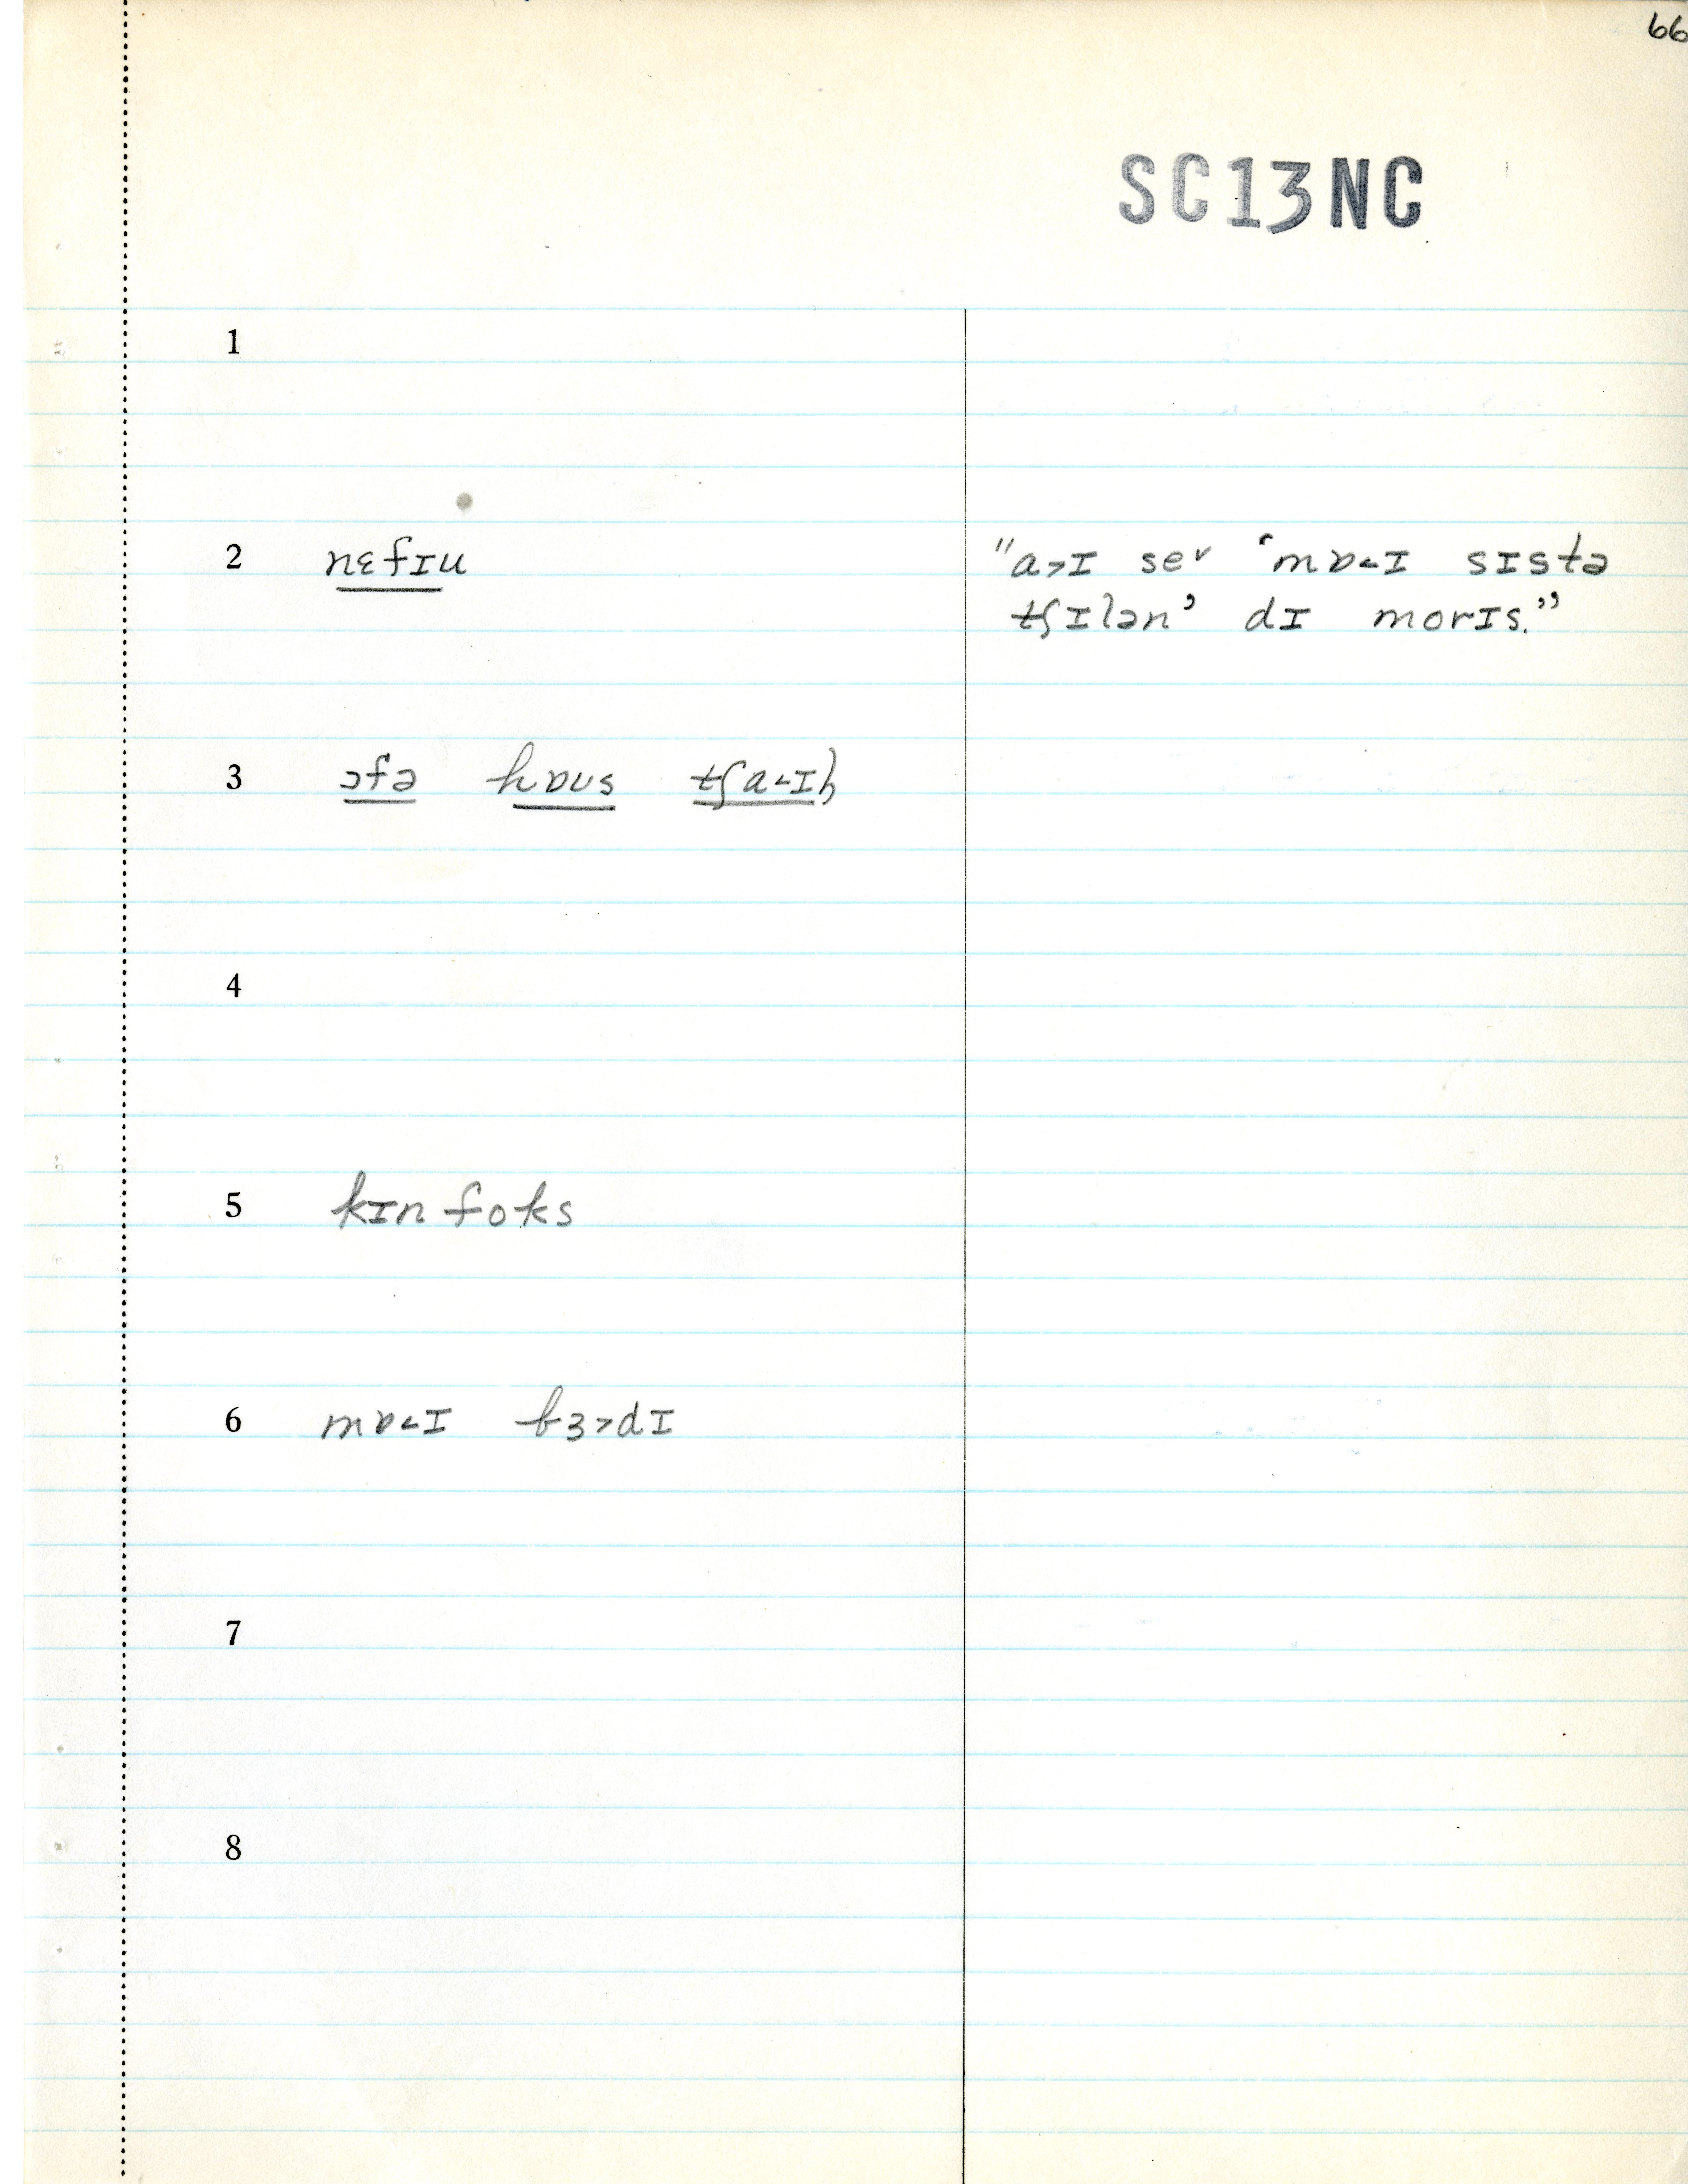 66
SC13NC
1
2 nɛfɪu "a>ɪ se˅ ‘mɒ<ɪ sɪstə
tʃɪlən’ dɪ morɪs.”
3 ɔfə hɒus tʃa<ɪl
4
5 kɪn foks
6 mɒ<ɪ bɜ>dɪ
7
8